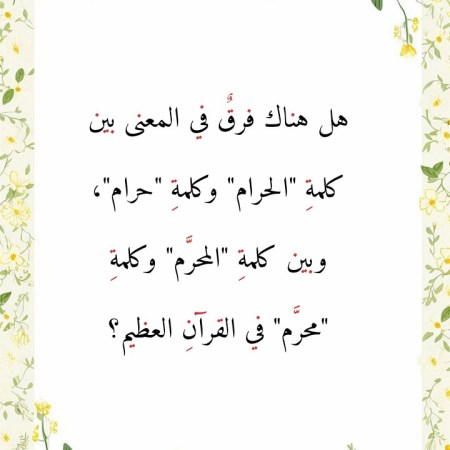 هل هناك فرقٌ في المعنى بين
كلمةِ "الحرام" وكلمةِ "حرام"،
وبين كلمةِ "المحرَّم" وكلمةِ
"محرَّم" في القرآنِ العظيم؟